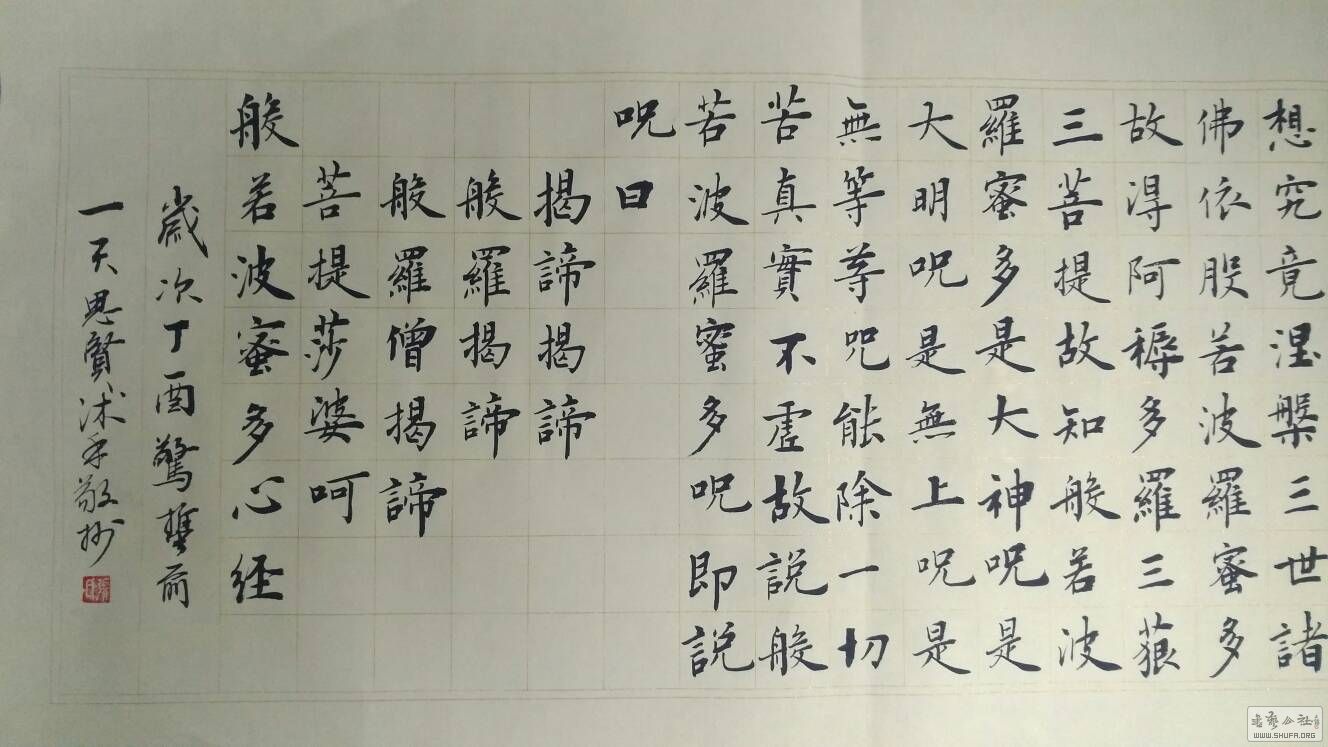 想究竟涅槃三世諸
佛依股若波羅蜜多
故得阿耨多羅三藐
三菩提故知般若波
羅蜜多是大神呪是
大明呪是無上呪是
無等等咒能除一切
苦真實不虛故說般
若波羅蜜多呪即說
呪曰
揭諦揭諦
般羅揭諦
般羅僧揭諦
菩提莎婆呵
般若波蜜多心経
歲次丁酉驚蟄前
一天思賢沐手敬抄
書藝公社
WWW.SHUFA.ORG